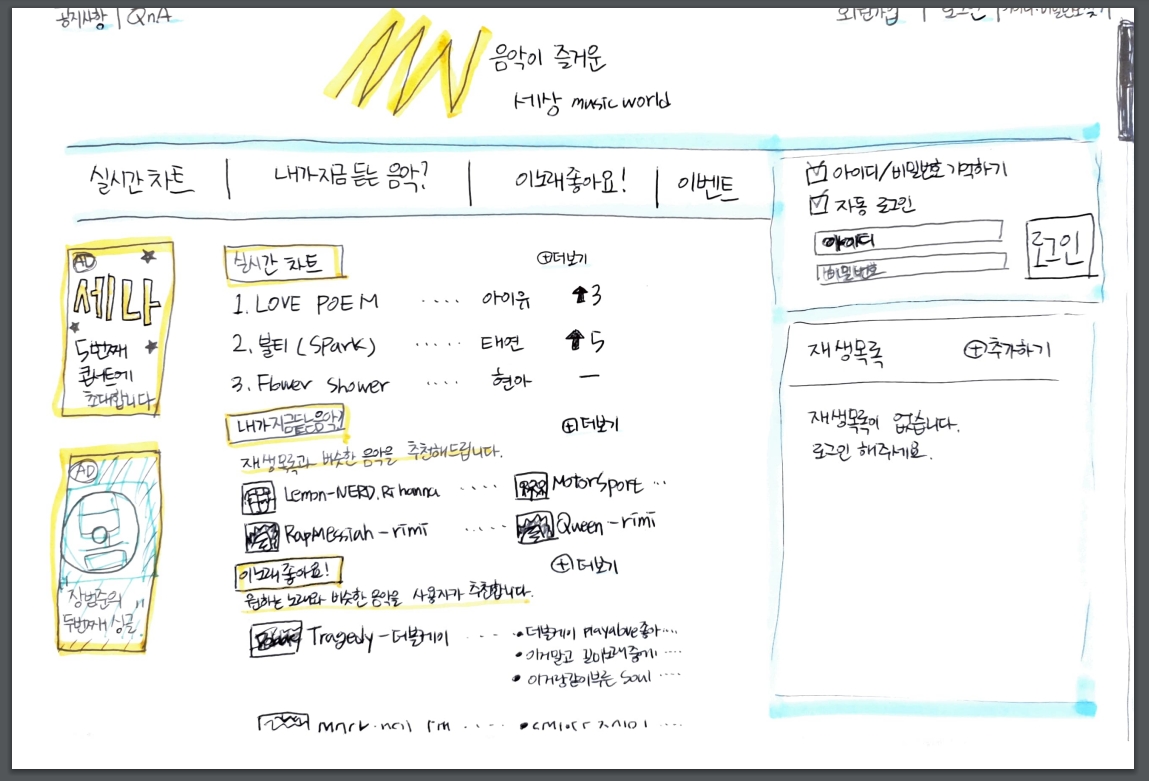 공지사항 | QnA
회원가입 | 로그인 | 아이디·비밀번호찾기
MW 음악이 즐거운
세상 music world
실시간 차트 | 내가 지금 듣는 음악? | 이노래 좋아요! | 이벤트
아이디/비밀번호 기억하기
자동 로그인
아이디
비밀번호
로그인
AD
세나
5번째
콘서트에
초대합니다
AD
장범준의
두번째 싱글
실시간 차트
+더보기
1. LOVE POEM ···· 아이유 3
2. 불티 (Spark) ····· 태연 5
3. Flower Shower ···· 현아 —
내가지금듣는음악?
+더보기
재생목록과 비슷한 음악을 추천해드립니다.
Lemon-NERD.Rihanna ····
Motorsport ···
RapMessiah-rimi ·····
Queen-rimi
이노래 좋아요!
+더보기
원하는 노래와 비슷한 음악을 사용자가 추천합니다.
Tragedy-더블케이 ····
• 더블케이 playalove좋아····
• 이거말고
• 이거랑같이부른 Soul ····
재생목록
+추가하기
재생목록이 없습니다.
로그인 해주세요.